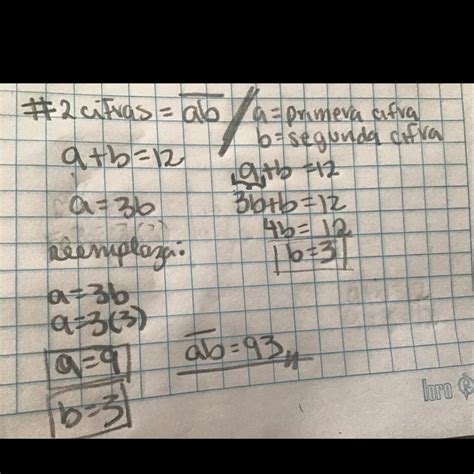 # 2 cifras = ab / a = primera cifra
b = segunda cifra
a+b=12
a=3b
reemplaza:
a=3b
a=3(3)
a=9
b=3
a+b=12
3b+b=12
4b=12
b=3
ab=93
loro